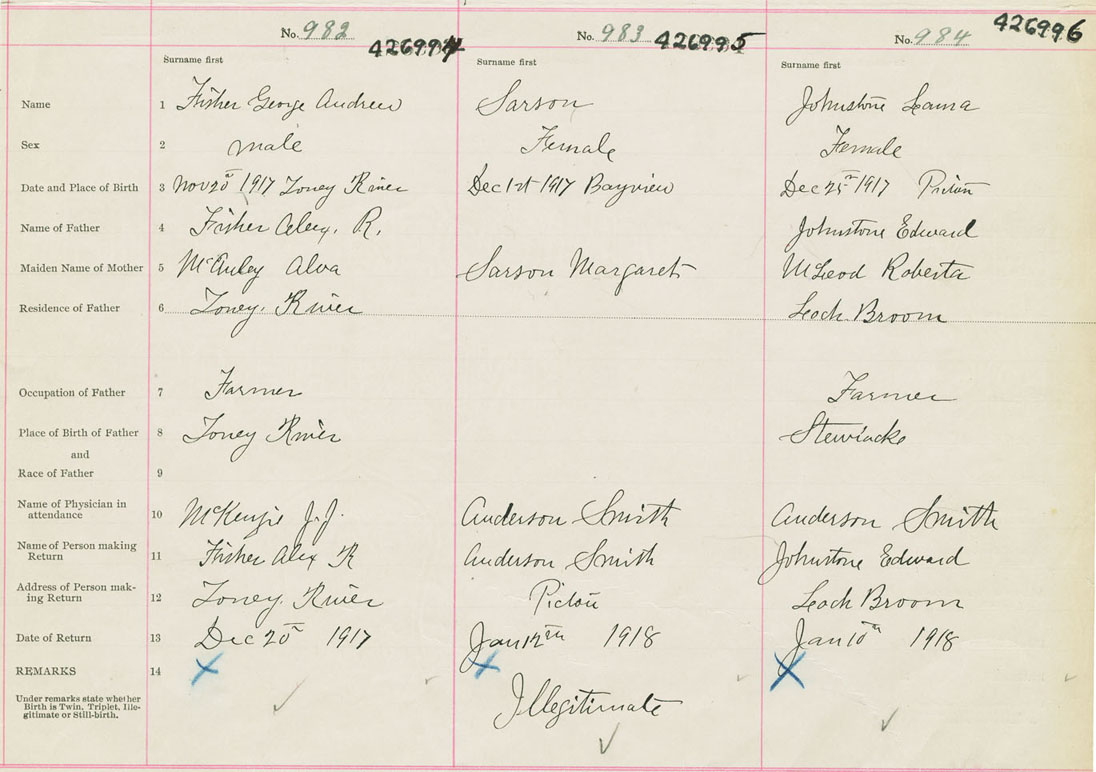 No. 982 426994 No. 983 426995 No. 984 426996
Surname first Surname first Surname first
Name 1 Fisher George Andrew Sarson Johnstone Laura
Sex 2 male Female Female
Date and Place of Birth 3 Nov 20th 1917 Toney River Dec 1st 1917 Bayview Dec 25th 1917 Pictou
Name of Father 4 Fisher Alex. R. Johnstone Edward
Maiden Name of Mother 5 McAuley Alva Sarson Margaret McLeod Roberta
Residence of Father 6 Toney River Loch Broom
Occupation of Father 7 Farmer Farmer
Place of Birth of Father 8 Toney River Stewiacke
and
Race of Father 9
Name of Physician in
attendance 10 McKenzie J.J. Anderson Smith Anderson Smith
Name of Person making
Return 11 Fisher Alex R Anderson Smith Johnstone Edward
Address of Person mak-
ing Return 12 Toney River Pictou Loch Broom
Date of Return 13 Dec 20th 1917 Jan 12th 1918 Jan 10th 1918
REMARKS 14 X X X
Under remarks state whether
Birth is Twin, Triplet, Ille-
gitimate or Still-birth.
Illegitimate